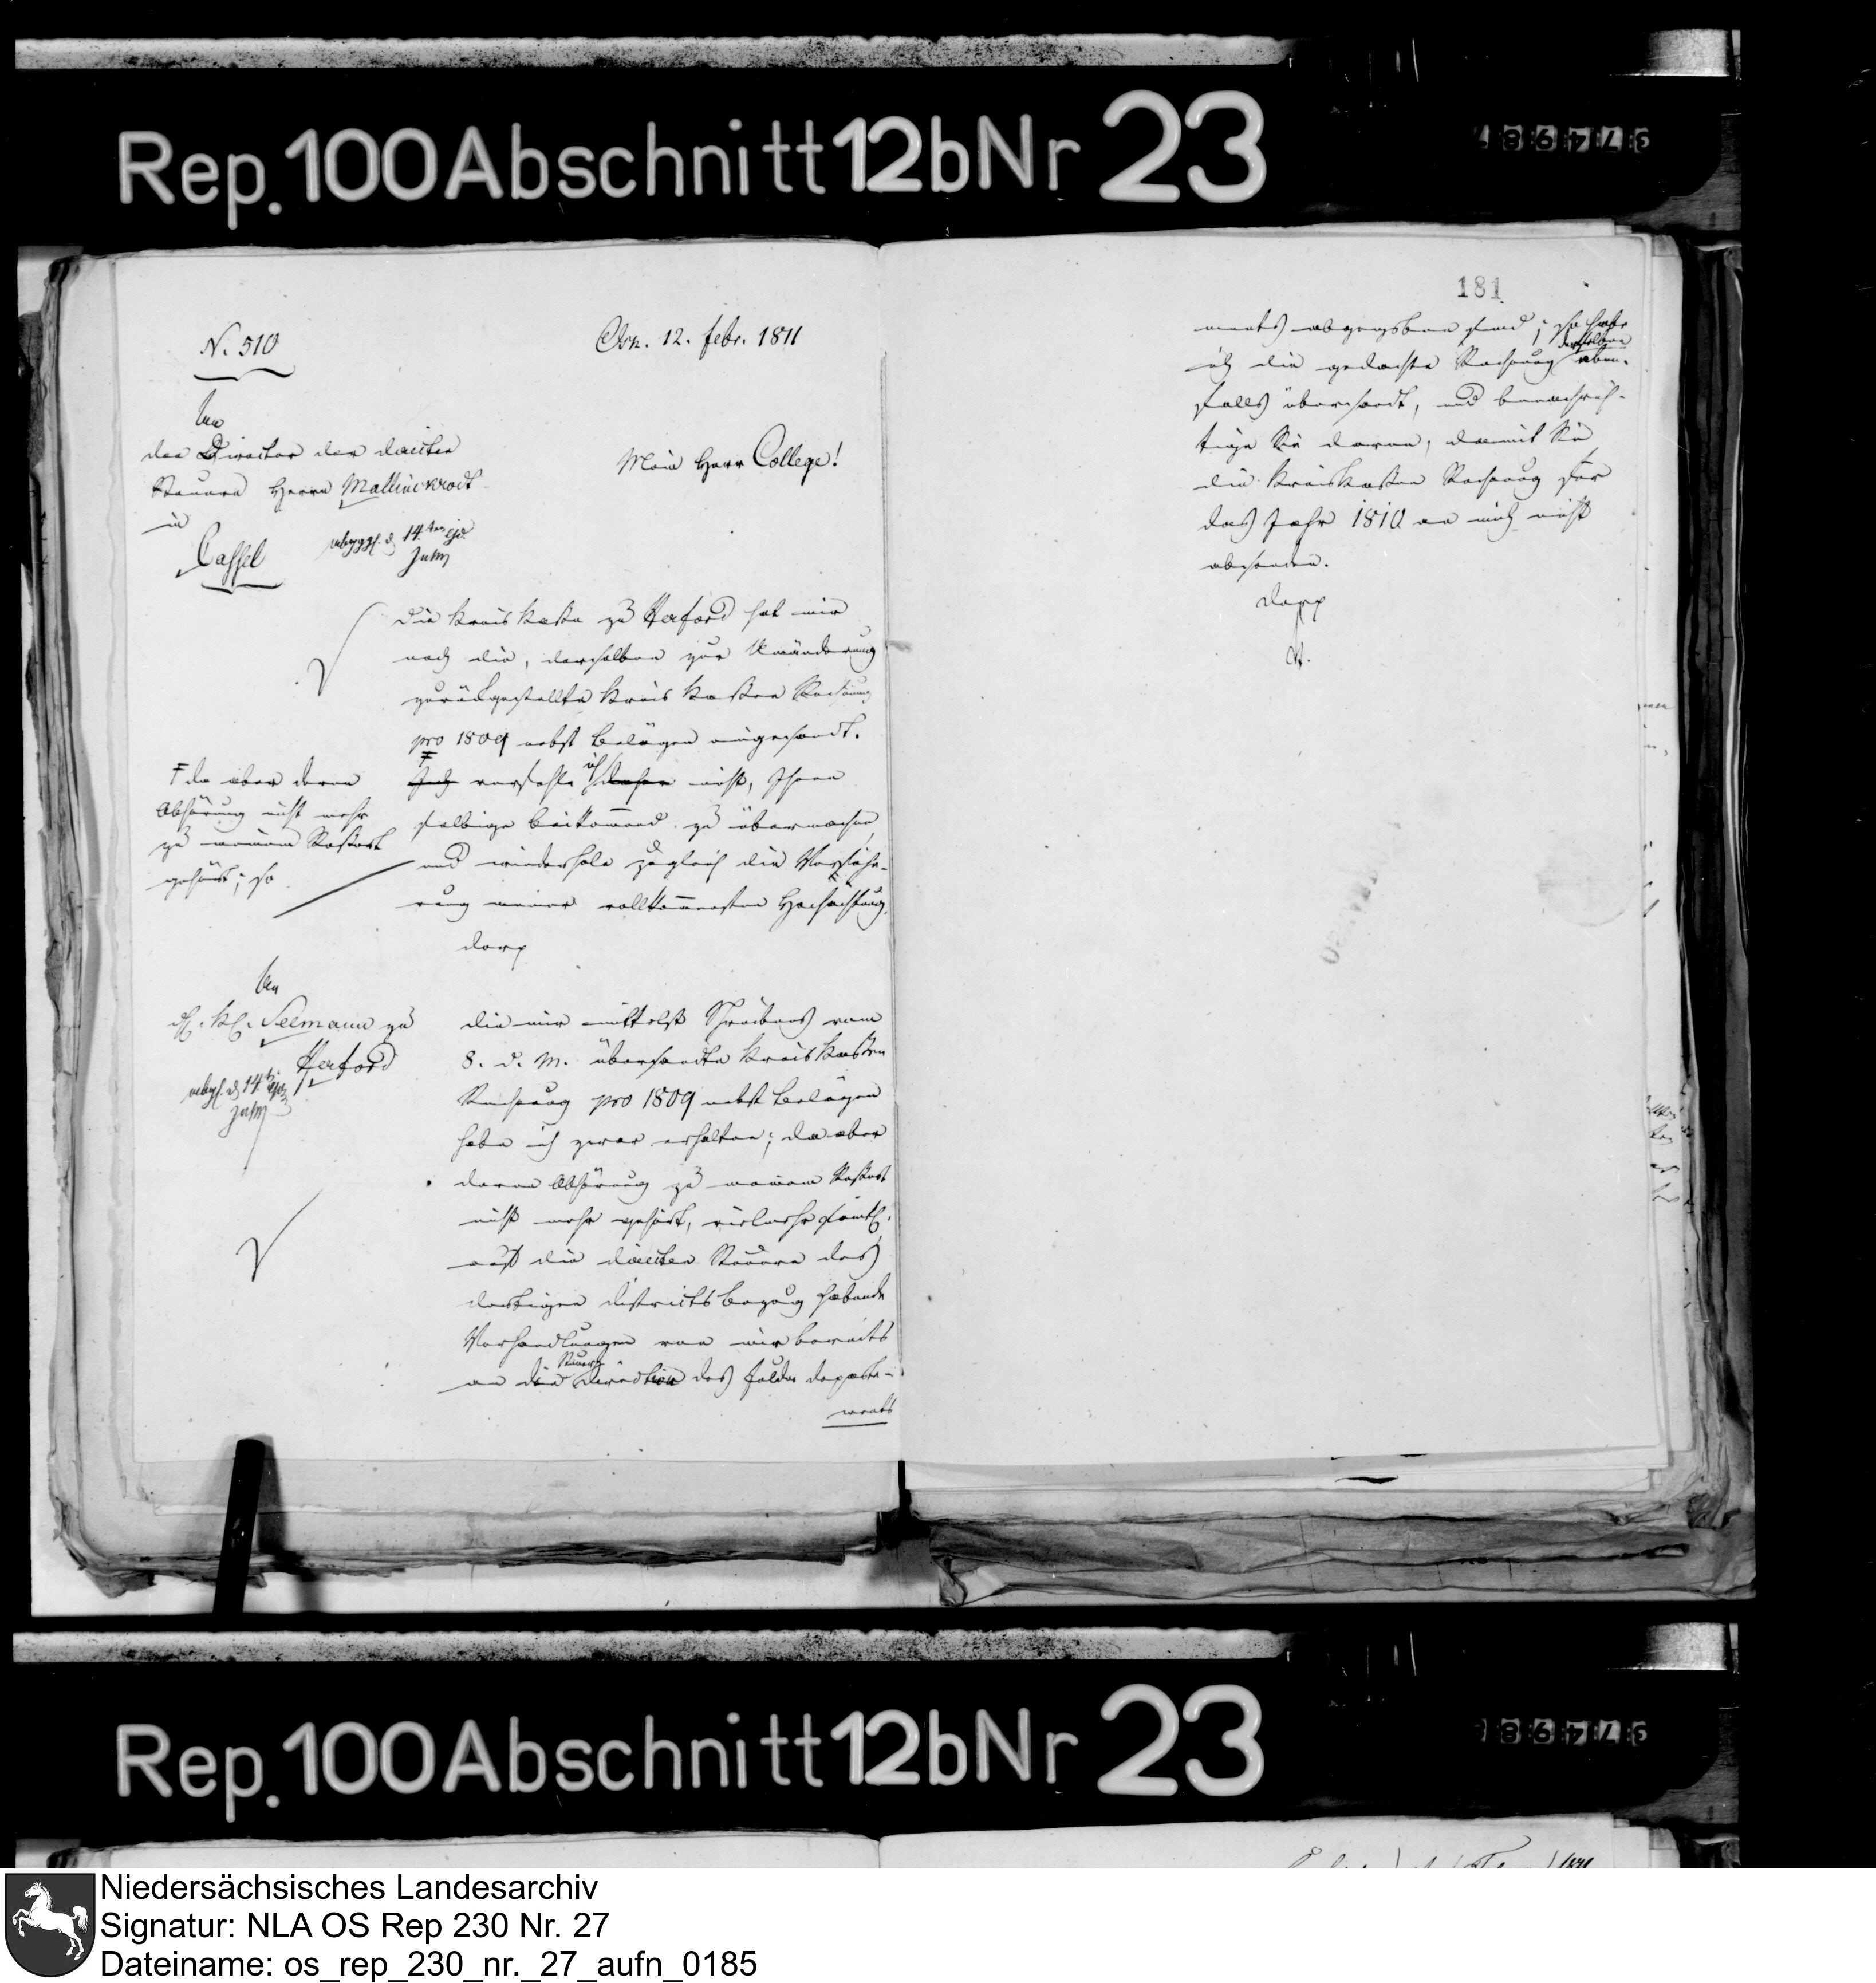 Rep. 100 Abschnitt 12b Nr 23
N. 510
Osn. 12. febr. 1811
An
den Director der directen
Steuern Herrn Mallinckrodt
in
Cassel
abggst. d 14ten ejd.
Mein Herr College!
Die Kreis Kasse zu Herford hat mir
noch die, derselben zur Umänderung
zurückgestellte Kreis Kassen Rechnung
pro 1809 nebst Belägen eingesandt.
Ich verfehle ich daher nicht, Ihnen
selbige beikommend zu übermachen,
und wiederhole zugleich die Versiche-
rung meiner vollkommensten Hochachtung.
Ŧ da aber deren
Abhörung nicht mehr
zu meinem Ressort
gehört; so
An
Seemann zu
Herford
d 14
Die mir mittelst Schreibens vom
8. d. M. übersandte Kreis Kassen
Rechnung pro 1809 nebst Belägen
habe ich zwar erhalten; da aber
deren Abhörung zu meinem Ressort
nicht mehr gehört, vielmehr sämtl.
auf die directen Steuern des
dortigen Districts Bezug habende
Verhandlungen von mir bereits
an die Steuer Direction des Fulda Departe-
ments
181
ments abgegeben sind; so habe
ich die gedachte Rechnung derselben eben-
falls übersandt, und benachrich-
tige Sie davon, damit Sie
die Kreiskassen Rechnung für
das Jahr 1810 an mich nicht
absenden.
Rep. 100 Abschnitt 12b Nr 23
Niedersächsisches Landesarchiv
Signatur: NLA OS Rep 230 Nr. 27
Dateiname: os_rep_230_nr._27_aufn_0185